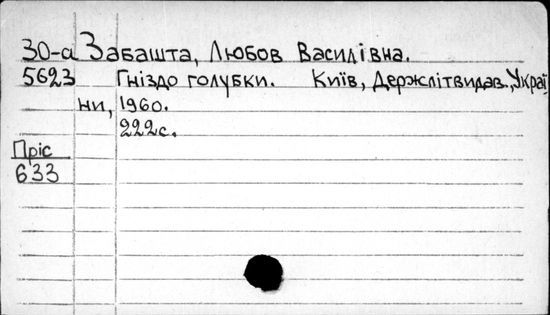 30-а Забашта, Любов Василівна.
5623 Гніздо голубки. Київ, Держлітвидав., Украї
ни, 1960.
222с.
Пріс
633